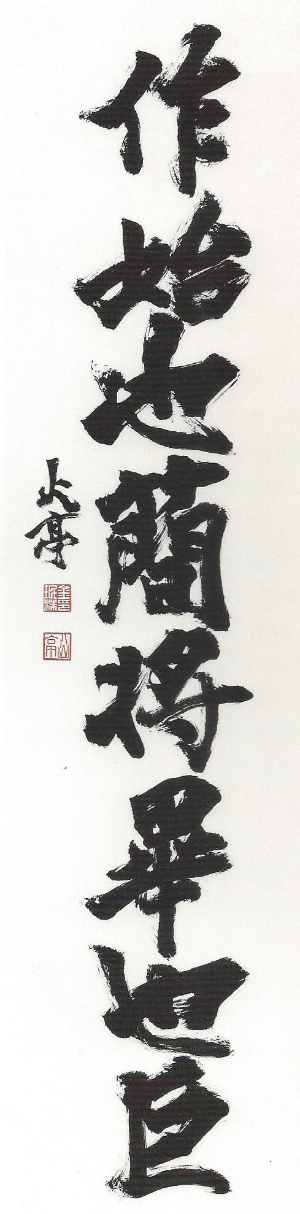 作始也簡将畢也巨
火亭